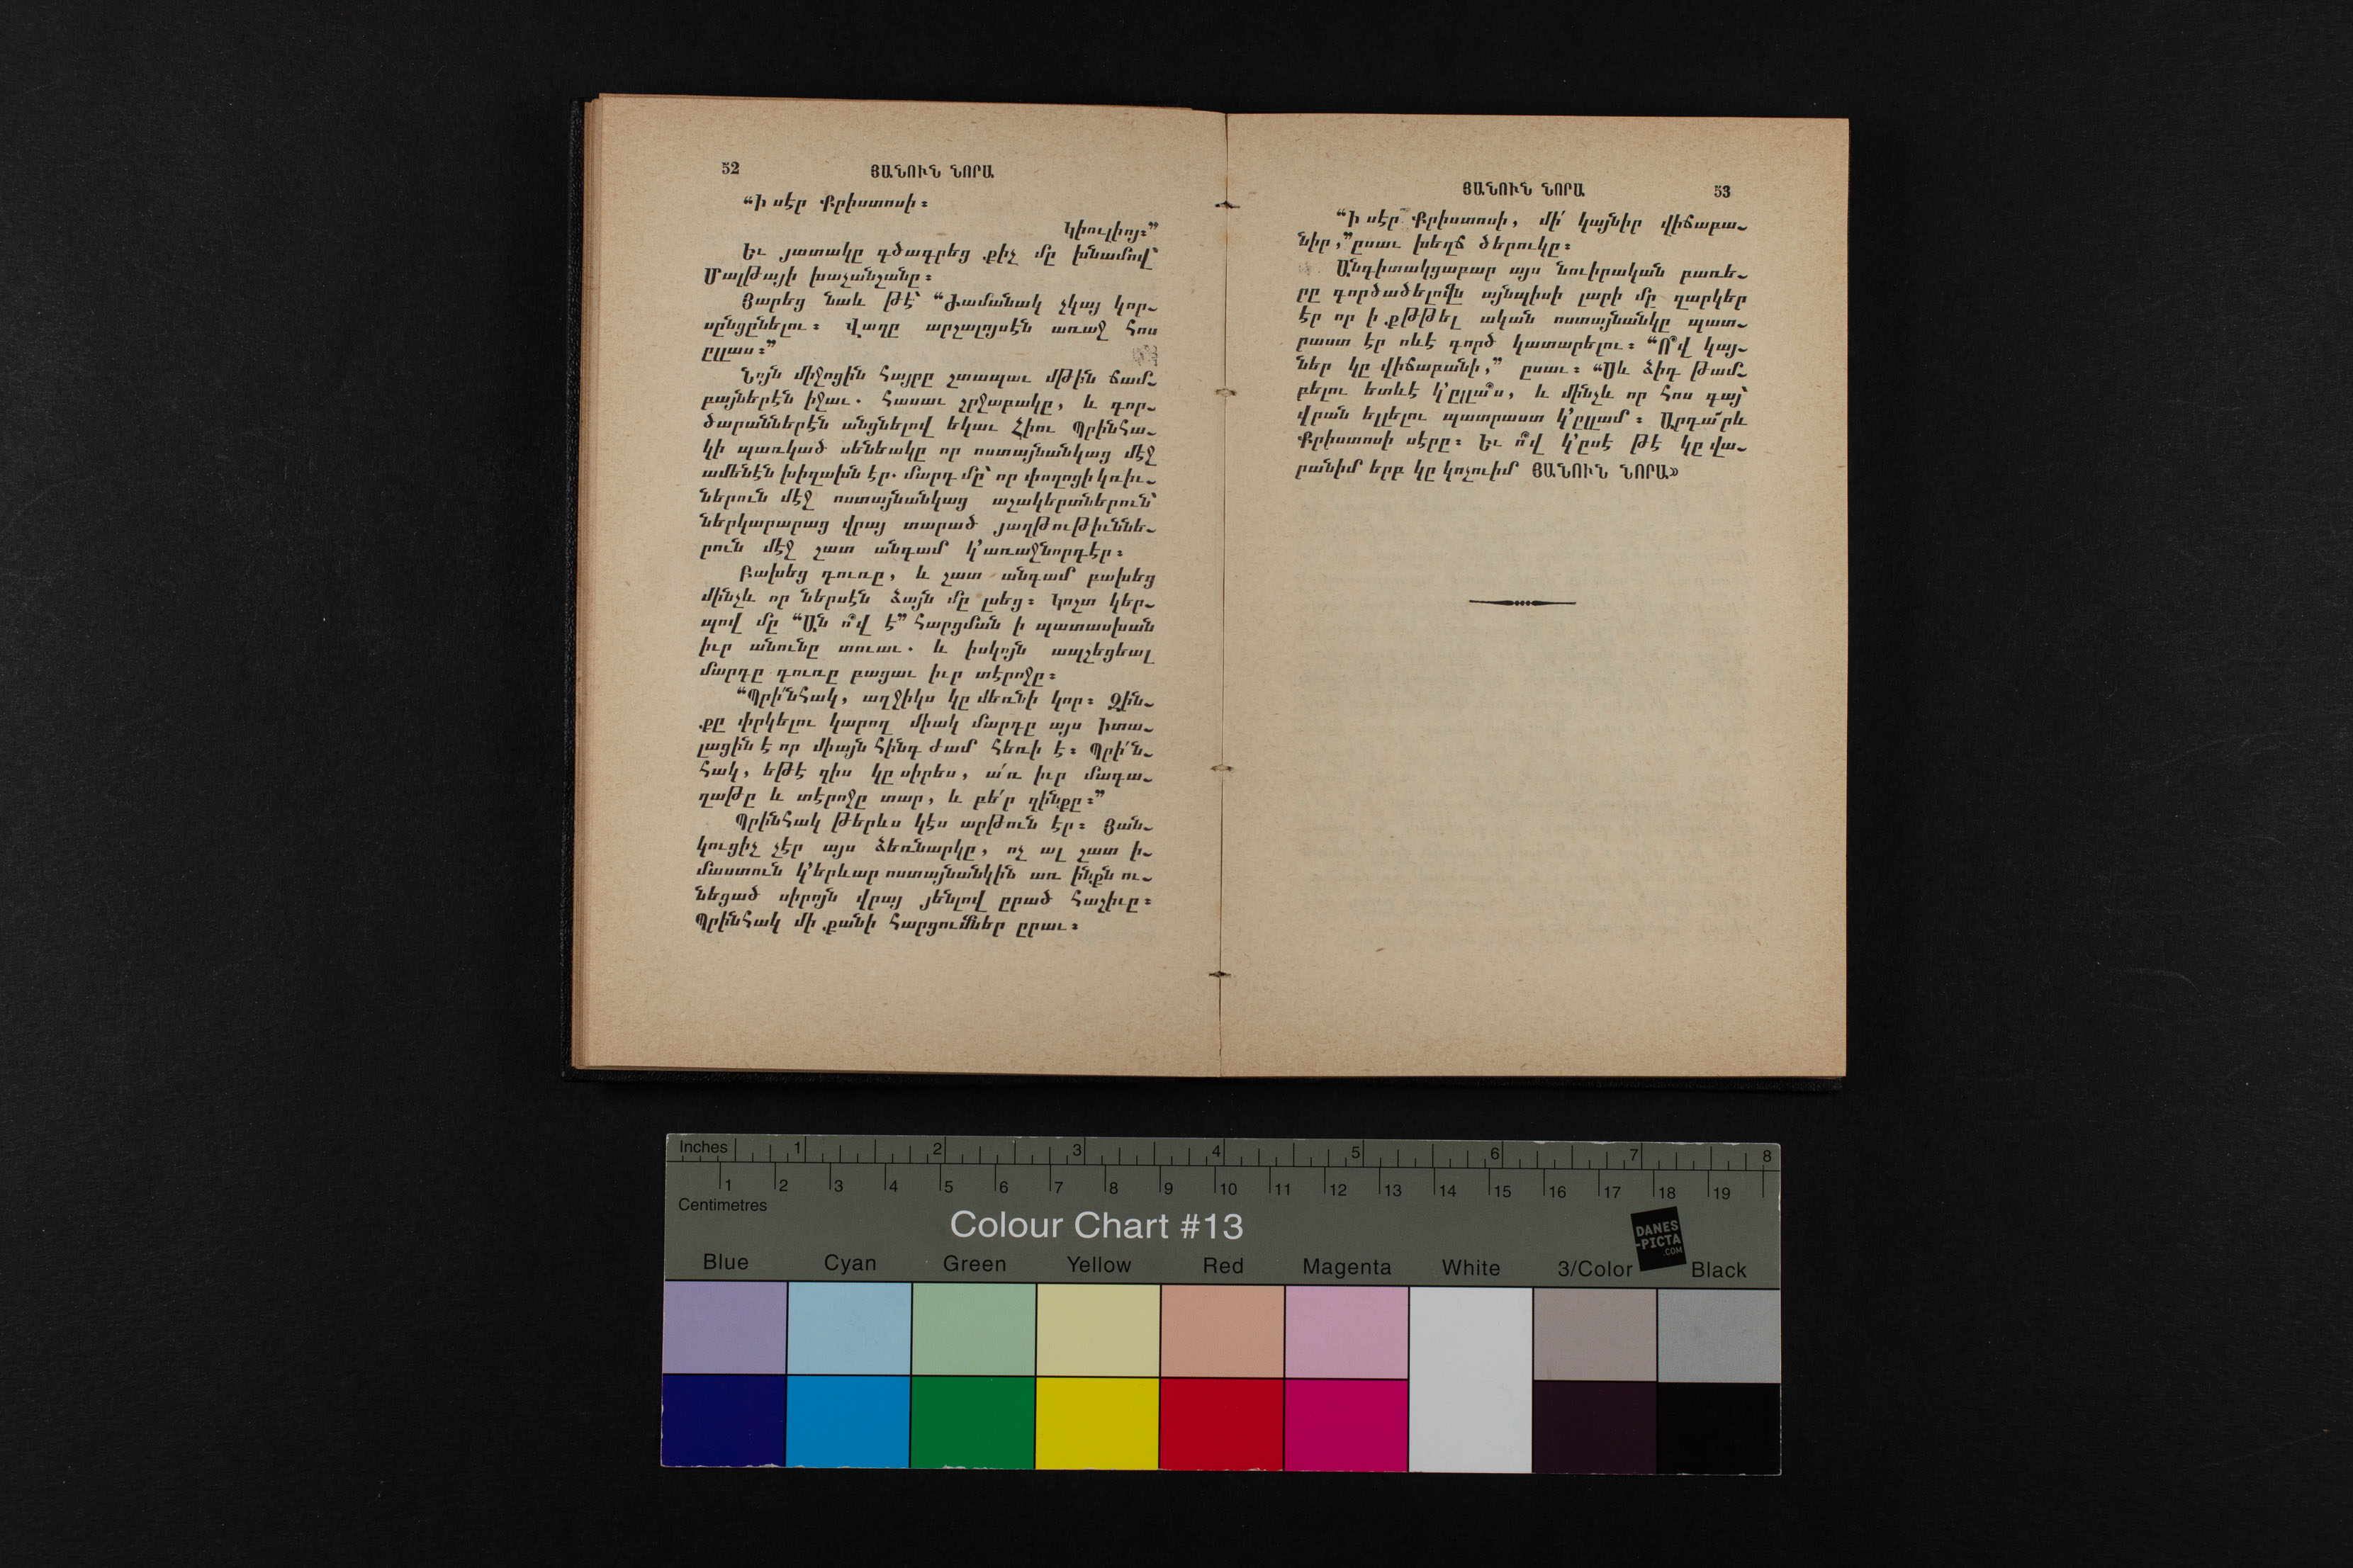 52
ՅԱՆՈՒՆ ՆՈՐԱ
“Ի սէր Քրիստոսի։
Կիուլիոյ։”
Եւ յատակը գծագրեց քիչ մը խնամով՝
Մալթայի խաչանշանը։
Յարեց նաև թէ՝ “Ժամանակ չկայ կոր-
սընցընելու։ Վաղը արշալոյսէն առաջ հոս
ըլլաս։”
Նոյն միջոցին հայրը շտապաւ մթին ճամ-
բայներէն իջաւ. հասաւ շրջաբակը, և գոր-
ծարաններէն անցնելով եկաւ Հիու Պրինհա-
կի պառկած սենեակը որ ոստայնանկաց մէջ
ամենէն խիզախն էր. մարդ մը՝ որ փողոցի կռիւ-
ներուն մէջ ոստայնանկաց աշակերտներուն՝
ներկարարաց վրայ տարած յաղթութիւննե-
րուն մէջ շատ անգամ կ՚առաջնորդէր։
Բախեց դուռը, և շատ անգամ բախեց
մինչև որ ներսէն ձայն մը լսեց։ Կոշտ կեր-
պով մը “Ան ո՞վ է” հարցման ի պատասխան
իւր անունը տուաւ. և իսկոյն ապշեցեալ
մարդը դուռը բացաւ իւր տէրոջը։
“Պրի՛նհակ, աղջիկս կը մեռնի կոր։ Զին-
քը փրկելու կարող միակ մարդը այս Իտա-
լացին է որ միայն հինգ ժամ հեռի է։ Պրի՛ն-
հակ, եթէ զիս կը սիրես, ա՛ռ իւր մագա-
ղաթը և տէրոջը տար, և բե՛ր զինքը։”
Պրինհակ թերևս կէս արթուն էր։ Ցան-
կուցիչ չէր այս ձեռնարկը, ոչ ալ շատ ի-
մաստուն կ՚երևար ոստայնանկին առ ինքն ու-
նեցած սիրոյն վրայ յենլով ըրած հաշիւը։
Պրինհակ մի քանի հարցումներ ըրաւ։
ՅԱՆՈՒՆ ՆՈՐԱ
53
“Ի սէր Քրիստոսի, մի՛ կայնիր վիճաբա-
նիր,” ըսաւ խեղճ ծերուկը։
Անգիտակցաբար այս նուիրական բառե-
րը գործածելովն այնպիսի լարի մը զարկեր
էր որ ի քթթել ական ոստայնանկը պատ-
րաստ էր ոևէ գործ կատարելու։ “Ո՞վ կայ-
ներ կը վիճաբանի,” ըսաւ։ “Սև ձիդ թամ-
բելու ետևէ կ՚ըլլա՞ս, և մինչև որ հոս գայ՝
վրան ելլելու պատրաստ կ՚ըլլամ։ Արդա՜րև
Քրիստոսի սէրը։ Եւ ո՞վ կ՚ըսէ թէ կը վա-
րանիմ երբ կը կոչուիմ ՅԱՆՈՒՆ ՆՈՐԱ»
Inches 1 2 3 4 5 6 7 8
1 2 3 4 5 6 7 8 9 10 11 12 13 14 15 16 17 18 19
Centimetres
Colour Chart #13
DANES
-PICTA
.COM
Blue Cyan Green Yellow Red Magenta White 3/Color Black